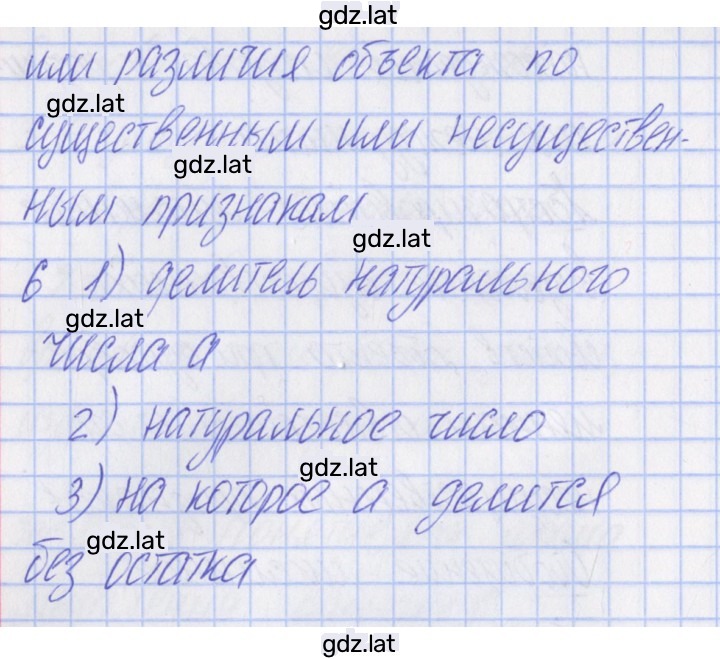 gdz.lat
или различия объекта по
gdz.lat
существенным или несуществен-
gdz.lat
ным признакам
gdz.lat
6 1) делитель натурального
gdz.lat
числа а
2) натуральное число
gdz.lat
3) на которое а делится
gdz.lat
без остатка
gdz.lat